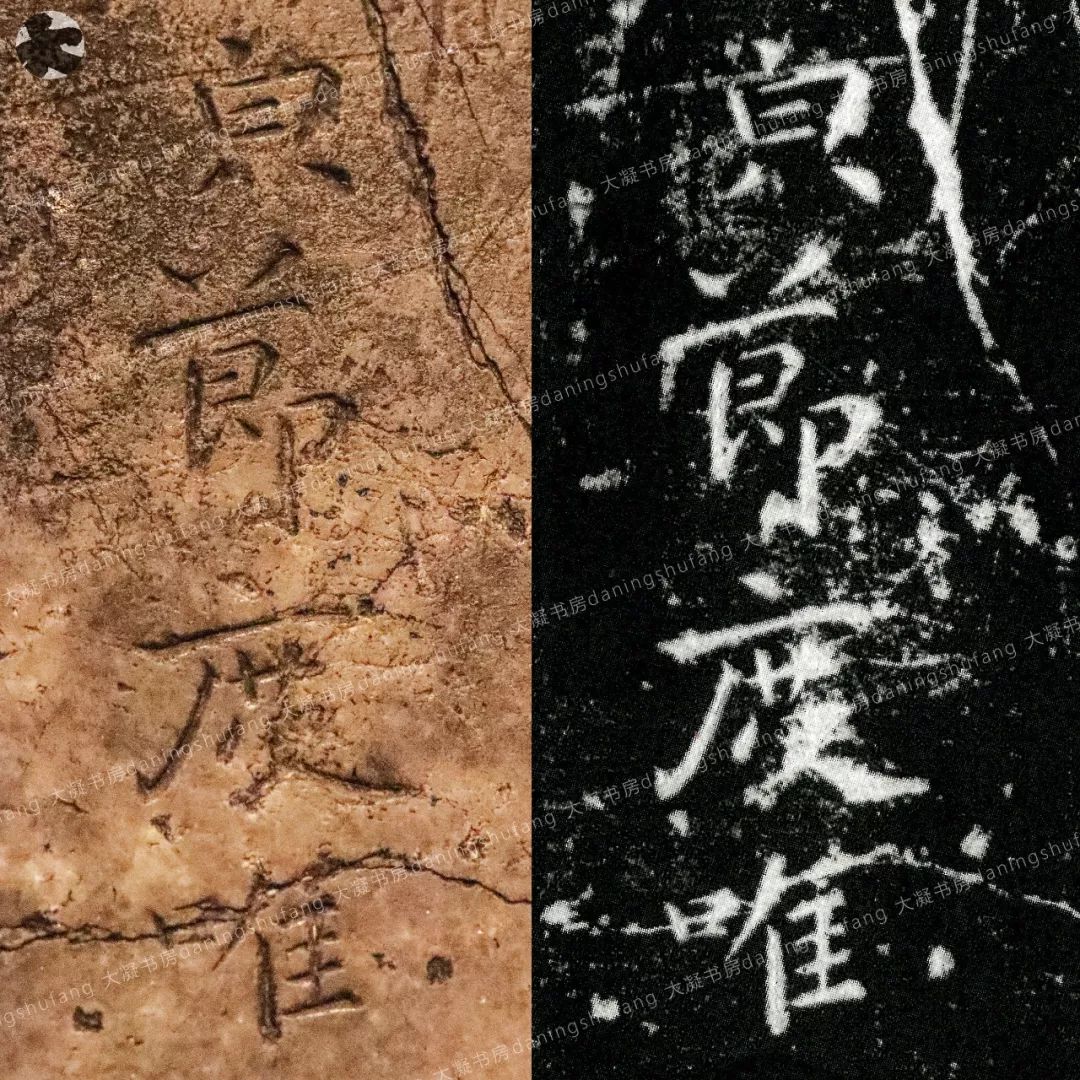 貞莭慶唯
貞莭慶唯
大凝书房daningshufang